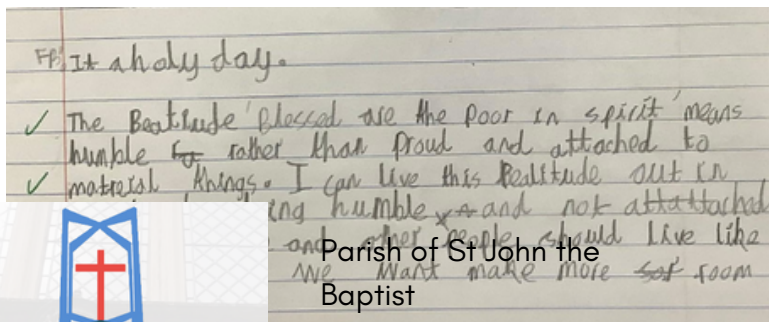 FP: It a holy day.
The Beatitude 'Blessed are the poor in spirit' means
humble rather than proud and attached to
matreial things. I can live this Bealitude out in
ing humble and not attattached
and other people should live like
we want make more room
Parish of St John the
Baptist